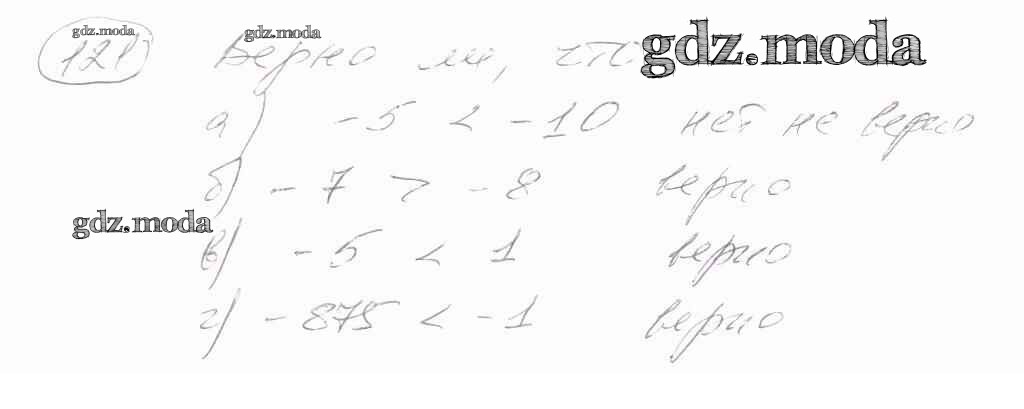 gdz.moda gdz.moda gdz.moda
121 Верно ли, что
а) -5 < -10 нет не верно
б) -7 > -8 верно
gdz.moda
в) -5 < 1 верно
г) -875 < -1 верно